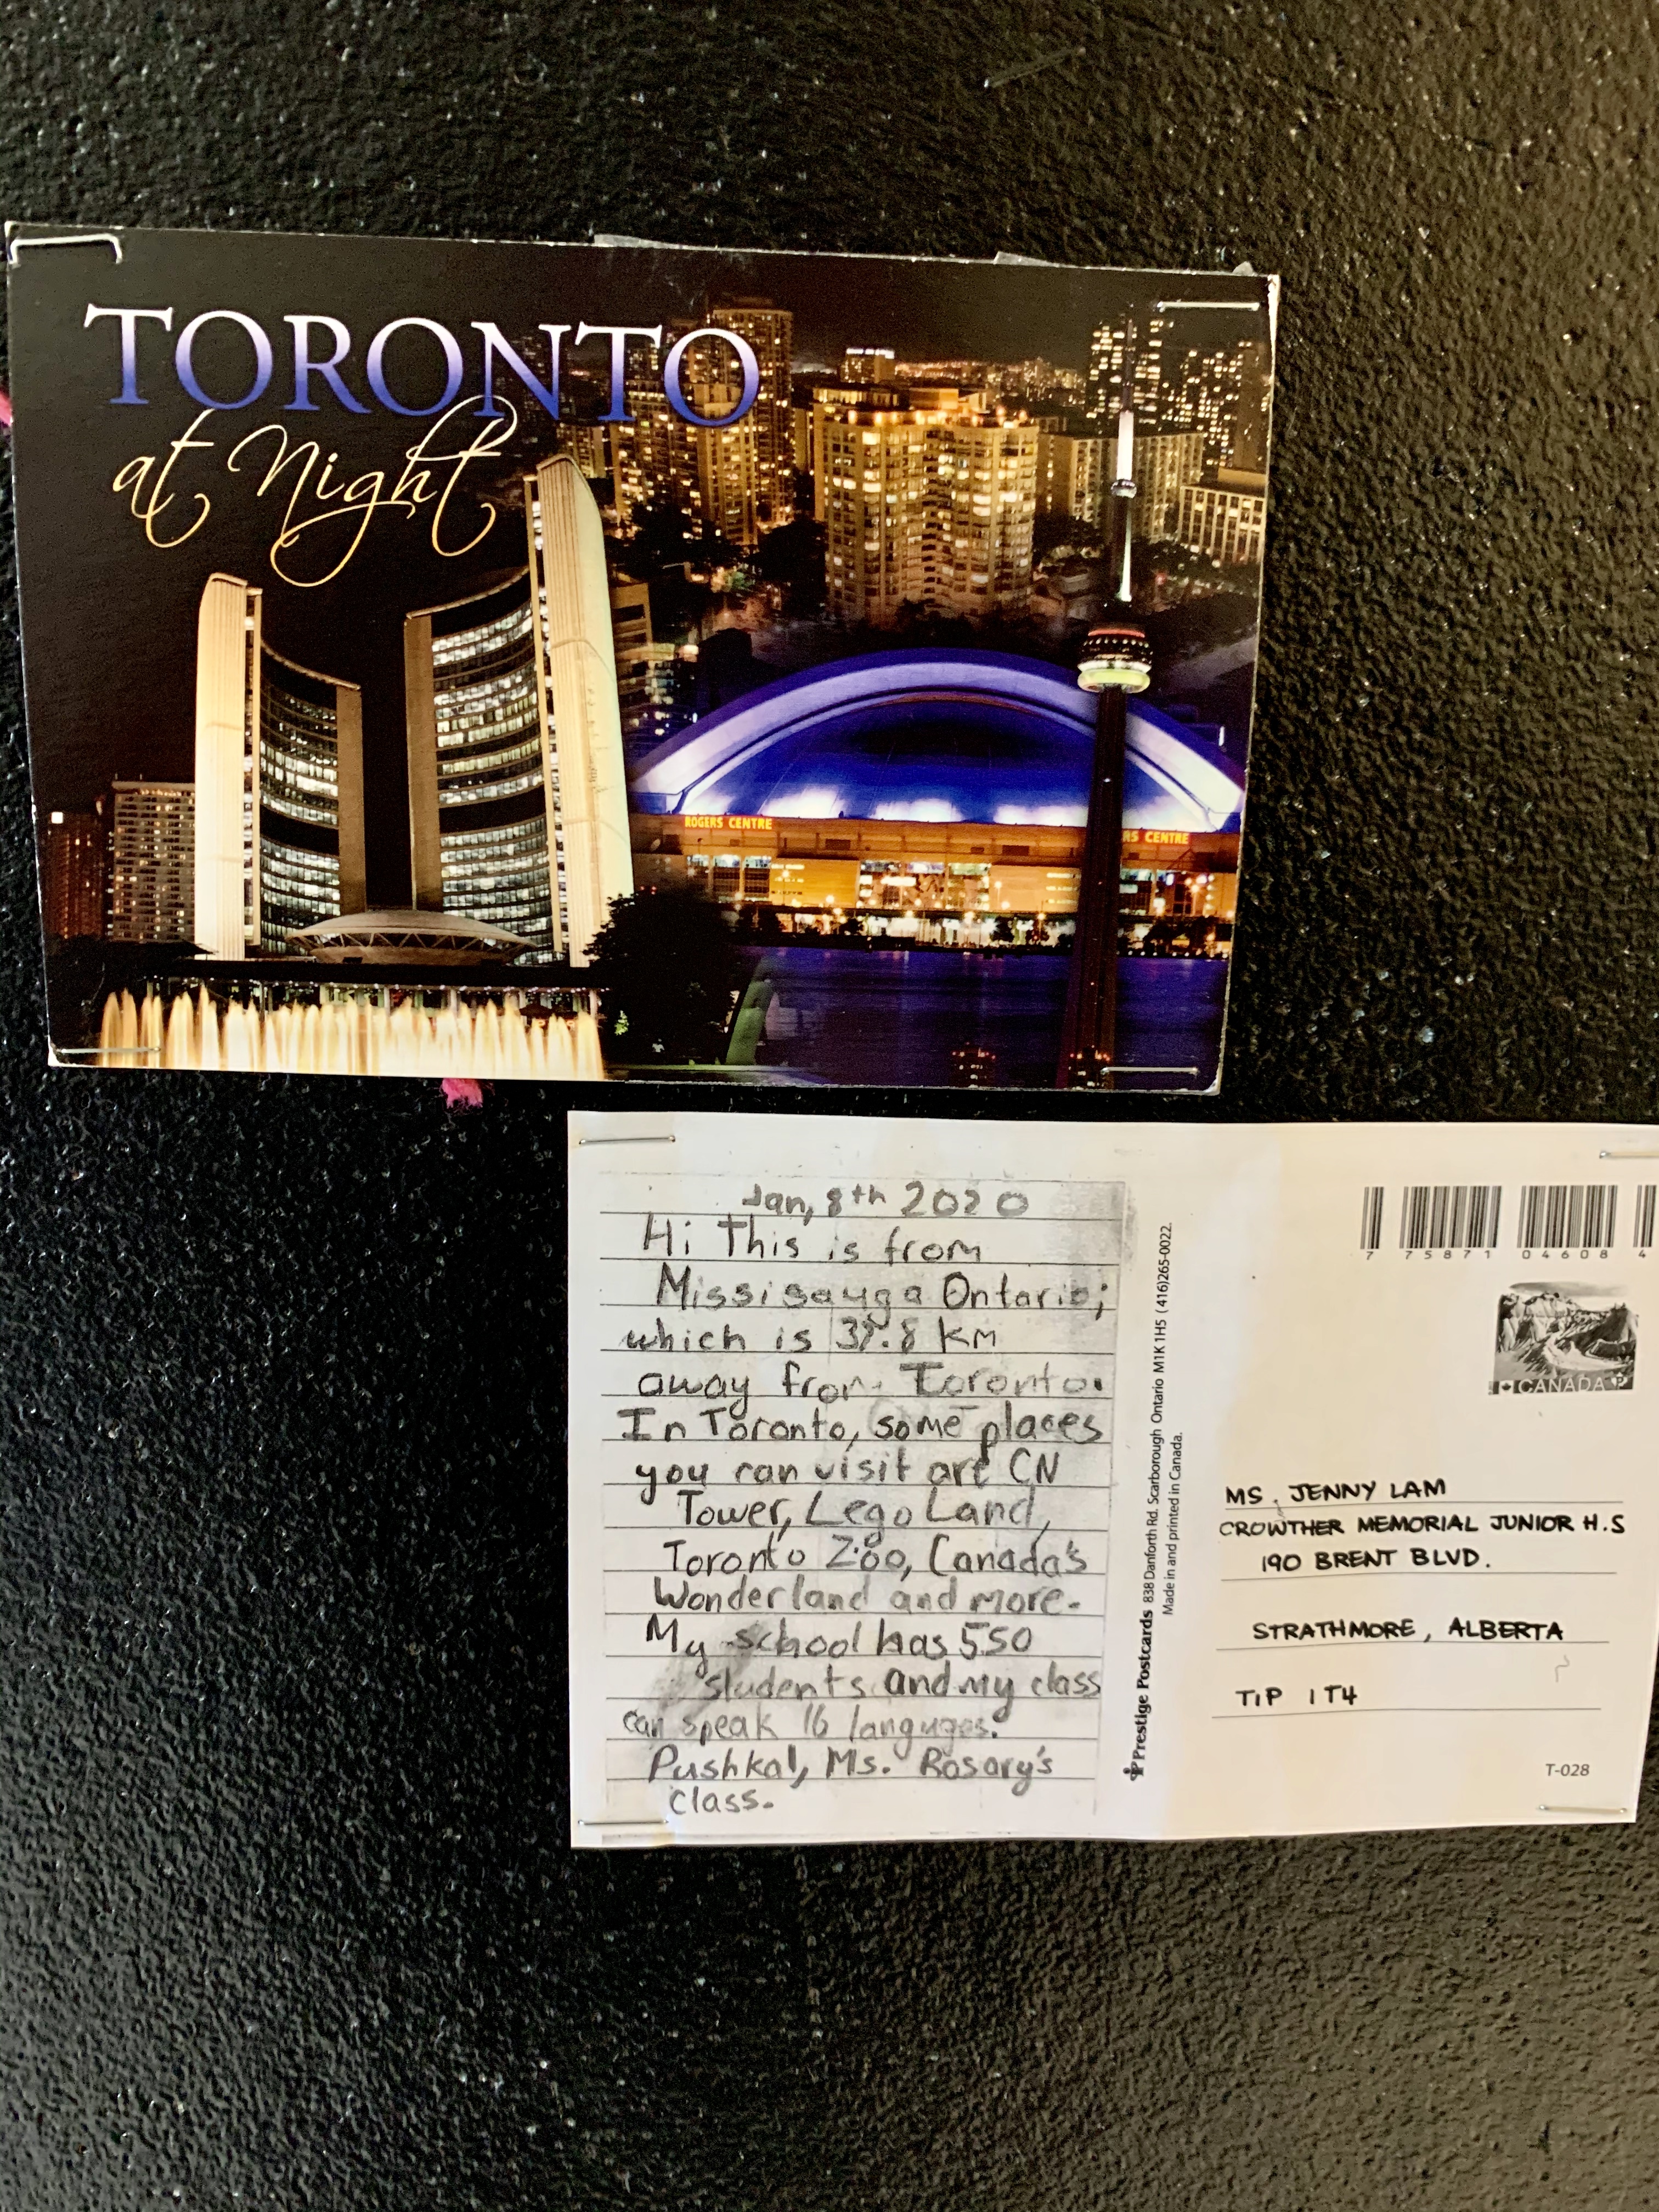 TORONTO
at Night
ROGERS CENTRE
RS CENTRE
Jan, 8th 2020
Hi This is from
Missisauga Ontario;
which is 37.8 KM
away from Toronto.
In Toronto, some places
you can visit are CN
Tower, Lego Land,
Toronto Zoo, Canada's
Wonderland and more.
My school has 550
students and my class
can speak 16 languges.
Pushkal, Ms. Rosary's
class.
Prestige Postcards 838 Danforth Rd. Scarborough Ontario M1K 1H5 (416)265-0022
Made in and printed in Canada.
7 75871 04608 4
CANADA P
MS. JENNY LAM
CROWTHER MEMORIAL JUNIOR H.S
190 BRENT BLVD.
STRATHMORE, ALBERTA
T1P 1T4
T-028